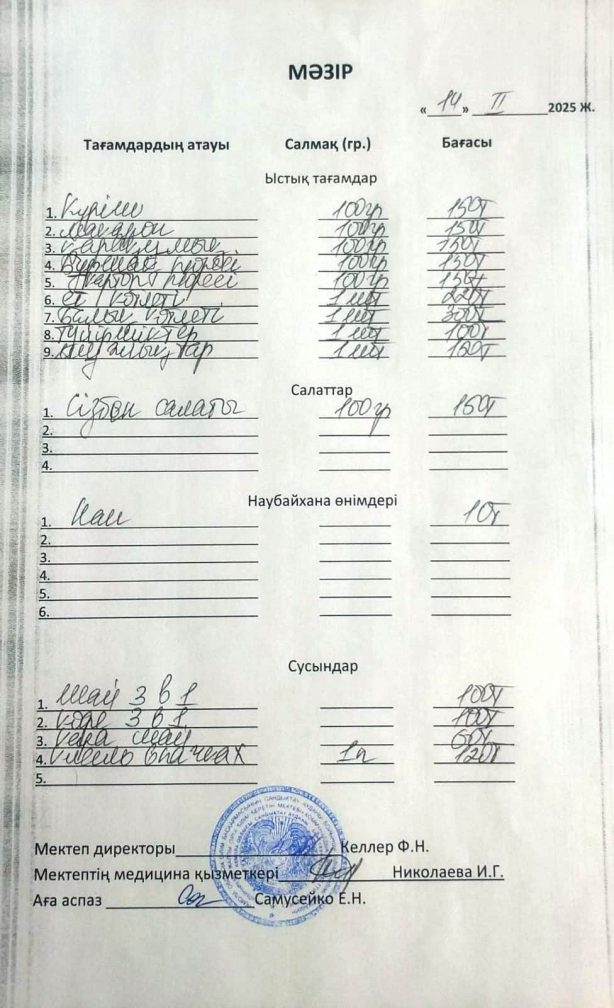 МӘЗІР
«14» II 2025 Ж.
Тағамдардың атауы Салмақ (гр.) Бағасы
Ыстық тағамдар
1. Күріш 100гр 150т
2. Макарон 100гр 150т
3. Қарақұмық 100гр 150т
4. Бұршақ пюресі 100гр 150т
5. Картоп пюресі 100гр 150т
6. Ет котлеті 1 шт
7. Балық котлеті 1 шт 300т
8. Түйірліктер 1 шт 100т
9. 1 шт 150т
Салаттар
1. Сізбен салаты 100гр 150т
2.
3.
4.
Наубайхана өнімдері
1. Нан 10т
2.
3.
4.
5.
6.
Сусындар
1. Шай 3 в 1 100т
2. Кофе 3 в 1 100т
3. Қара шай 60т
4. 1п 120т
5.
Мектеп директоры Келлер Ф.Н.
Мектептің медицина қызметкері Николаева И.Г.
Аға аспаз Самусейко Е.Н.